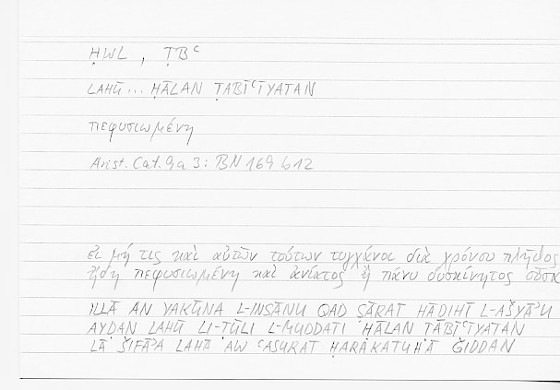 ḤWL , ṬBʿ
LAHŪ ... ḤĀLAN ṬABĪʿĪYATAN
πεφυσιωμένη
Arist. Cat. 9a 3 : BN 169 b 12
εἰ μή τις καὶ αὐτῶν τούτων τυγχάνοι διὰ χρόνου πλῆθος
ἤδη πεφυσιωμένη καὶ ἀνίατος ἢ πάνυ δυσκίνητος οὖσα
ILLĀ AN YAKŪNA L-INSĀNU QAD ṢĀRAT HĀḎIHĪ L-AŠYĀʾU
AYḌAN LAHŪ LI-ṬŪLI L-MUDDATI ḤĀLAN ṬĀBĪʿĪYATAN
LĀ ŠIFĀʾA LAHĀ AW ʿASURAT ḤARAKATUHĀ ǦIDDAN